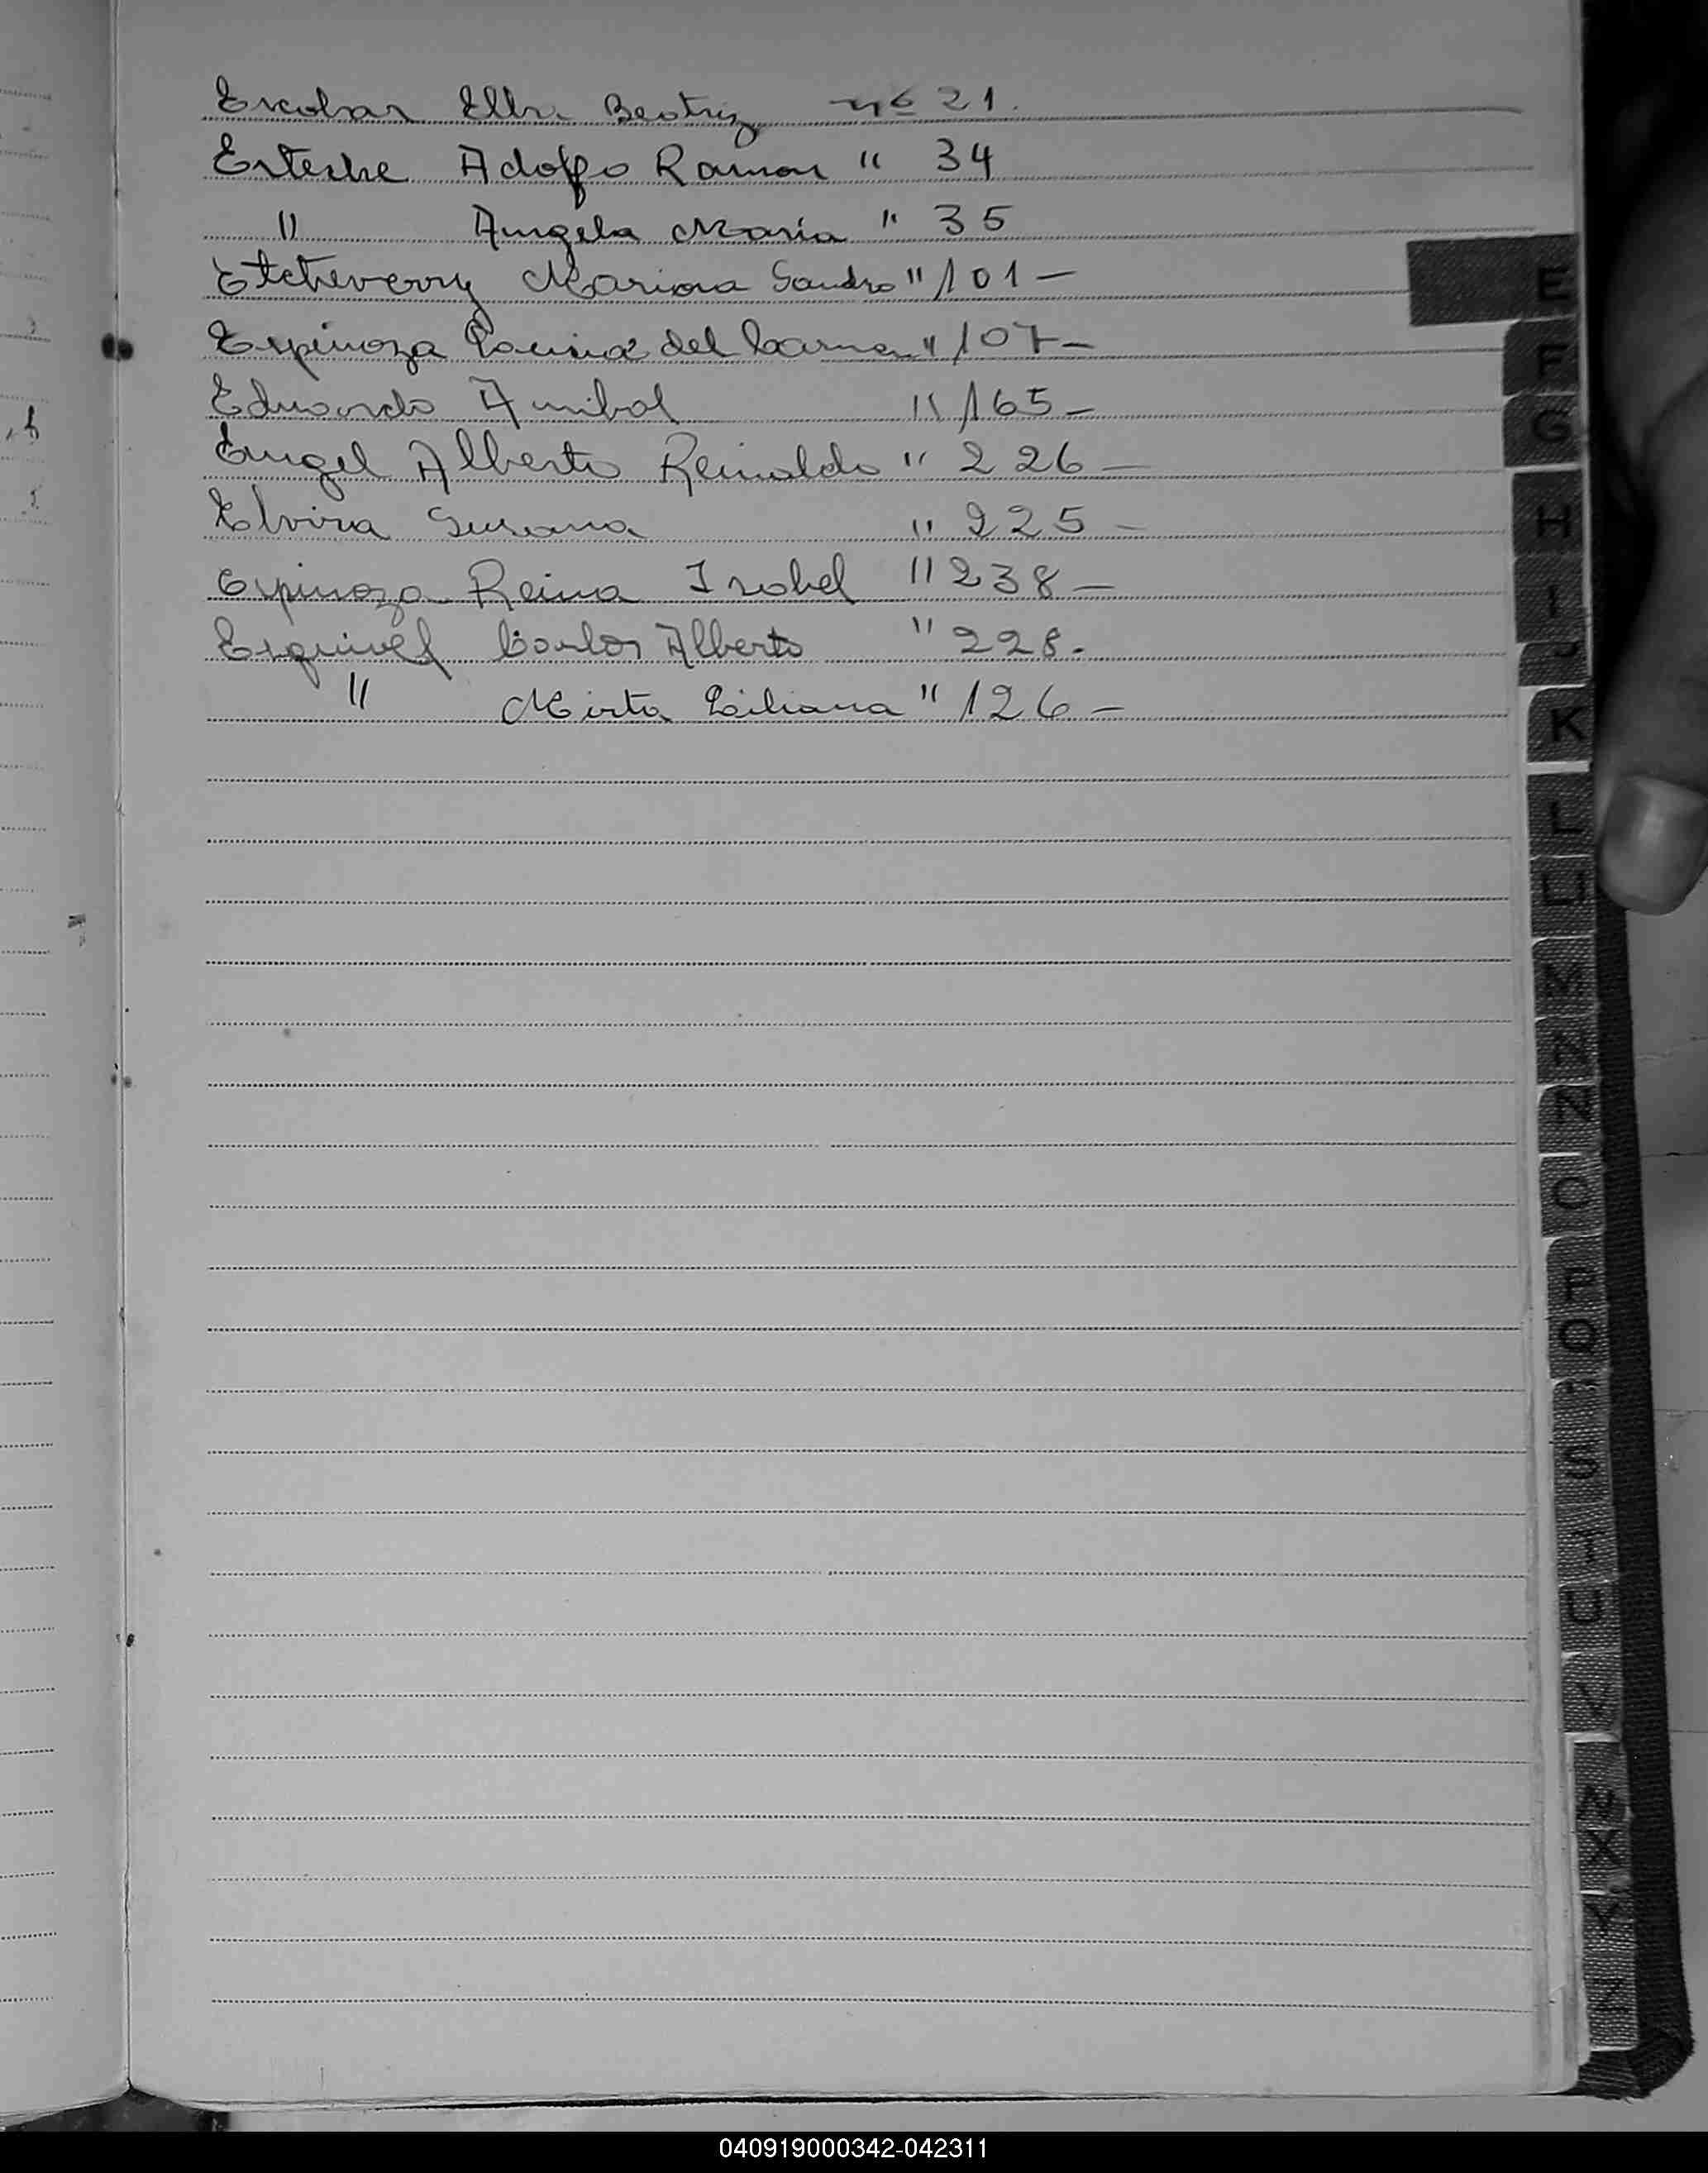 Escobar Elba Beatriz nº 21.
Esteche Adolfo Ramon " 34
" Angela Maria " 35
Etcheverry Mariona Sandra " 101 -
Espinoza del Carmen " 107 -
Eduardo Anibal " 165 -
Engel Alberto Reinaldo " 226 -
Elvira Susana " 225 -
Espinoza Reina Isabel " 238 -
Esquivel Carlos Alberto " 228.
" Mirta Liliana " 126 -
E
F
G
H
I
J
K
L
LL
M
N
Ñ
O
P
Q
S
T
U
V
X
Y
Z
040919000342-042311